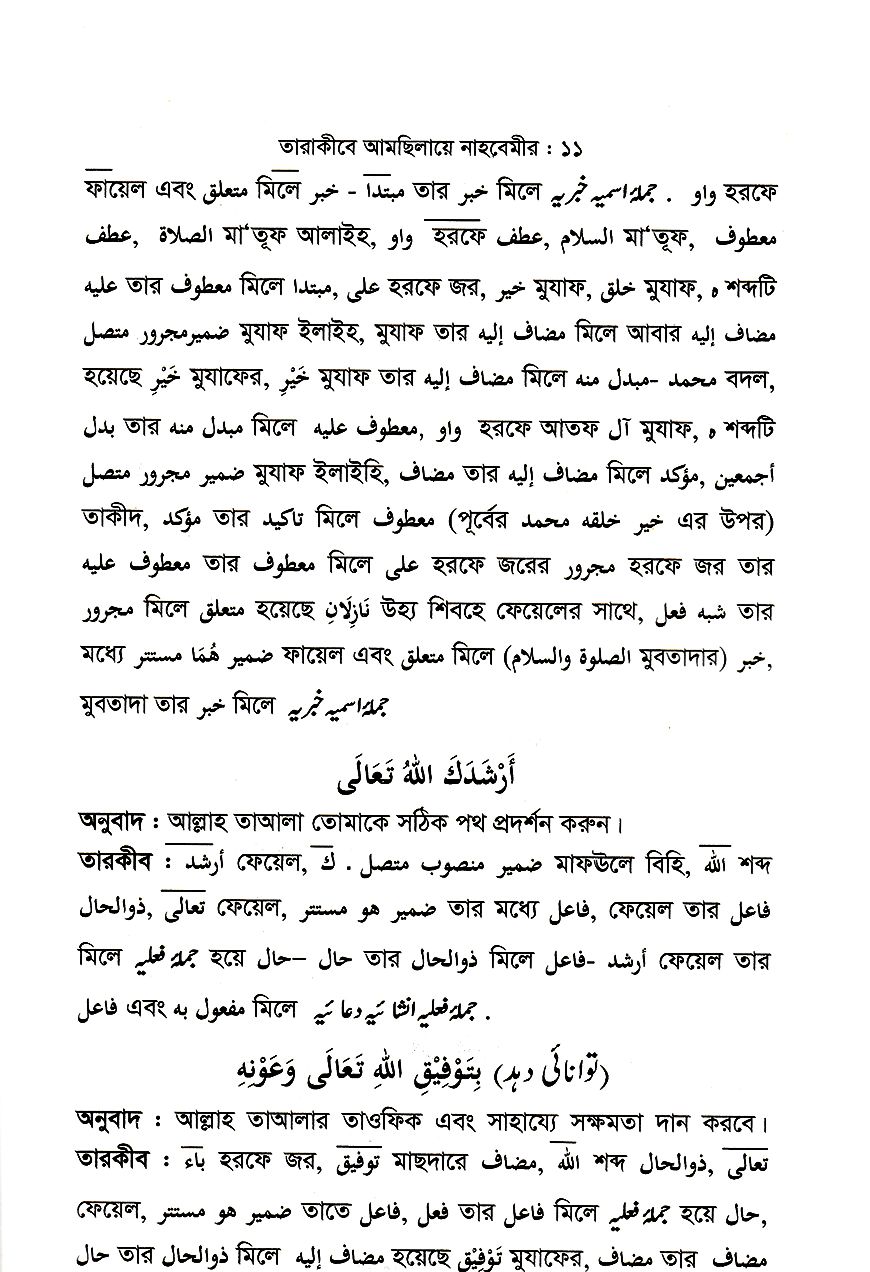 তারাকীবে আমছিলায়ে নাহবেমীর : ১১
ফায়েল এবং متعلق মিলে خبر - مبتدا তার خبر মিলে جملۂ اسمیہ خبریہ . واو হরফে
عطف, الصلاة মা‘তূফ আলাইহ, واو হরফে عطف, السلام মা‘তূফ, معطوف
عليه তার معطوف মিলে مبتدا, على হরফে জর, خير মুযাফ, خلق মুযাফ, ه শব্দটি
ضمير مجرور متصل মুযাফ ইলাইহ, মুযাফ তার مضاف إليه মিলে আবার مضاف إليه
হয়েছে خَيْرِ মুযাফের, خَيْرِ মুযাফ তার مضاف إليه মিলে مبدل منه -محمد বদল,
بدل তার مبدل منه মিলে معطوف عليه, واو হরফে আতফ آل মুযাফ, ه শব্দটি
ضمير مجرور متصل মুযাফ ইলাইহি, مضاف তার مضاف إليه মিলে مؤكد, أجمعين
তাকীদ, مؤكد তার تاكيد মিলে معطوف (পূর্বের خير خلقه محمد এর উপর)
معطوف عليه তার معطوف মিলে على হরফে জরের مجرور হরফে জর তার
مجرور মিলে متعلق হয়েছে نَازِلَانِ উহ্য শিবহে ফেয়েলের সাথে, شبه فعل তার
মধ্যে ضمير هُمَا مستتر ফায়েল এবং متعلق মিলে (الصلوة والسلام মুবতাদার) خبر,
মুবতাদা তার خبر মিলে جملۂ اسمیہ خبریہ
أَرْشَدَكَ اللهُ تَعَالَى
অনুবাদ : আল্লাহ তাআলা তোমাকে সঠিক পথ প্রদর্শন করুন।
তারকীব : أرشد ফেয়েল, ك . ضمير منصوب متصل মাফঊলে বিহি, الله শব্দ
ذوالحال, تعالى ফেয়েল, ضمير هو مستتر তার মধ্যে فاعل, ফেয়েল তার فاعل
মিলে جملۂ فعلیہ হয়ে حال– حال তার ذوالحال মিলে فاعل- أرشد ফেয়েল তার
فاعل এবং مفعول به মিলে جملۂ فعلیہ انشائیہ دعائیہ .
(توانائی دہد) بِتَوْفِيْقِ اللهِ تَعَالَى وَعَوْنِهِ
অনুবাদ : আল্লাহ তাআলার তাওফিক এবং সাহায্যে সক্ষমতা দান করবে।
তারকীব : باء হরফে জর, توفيق মাছদারে مضاف, الله শব্দ ذوالحال, تعالى
ফেয়েল, ضمير هو مستتر তাতে فاعل, فعل তার فاعل মিলে جملۂ فعلیہ হয়ে حال,
حال তার ذوالحال মিলে مضاف إليه হয়েছে تَوْفِيْقِ মুযাফের, مضاف তার مضاف